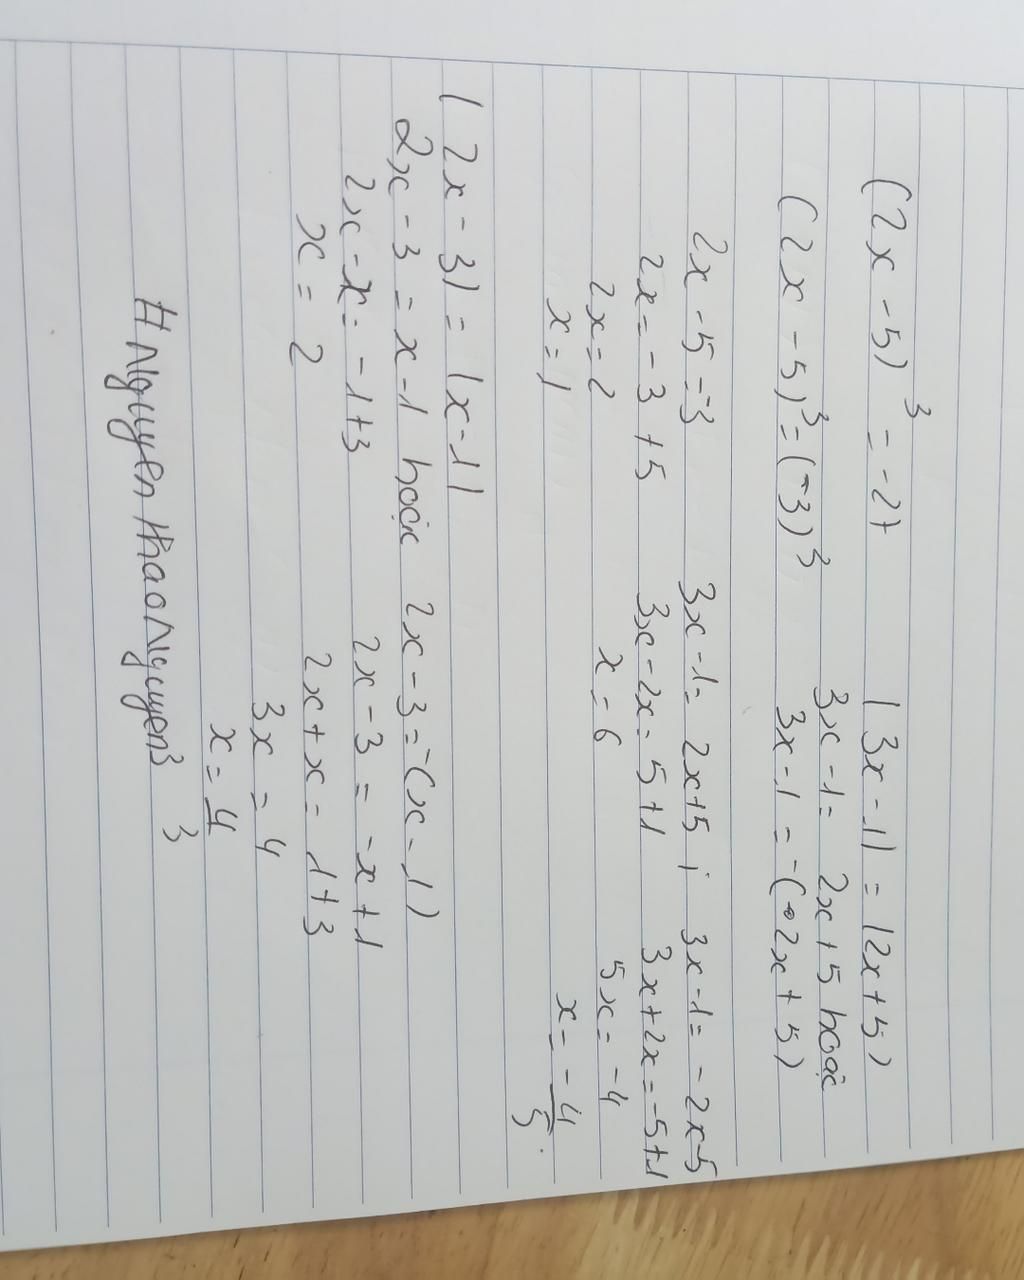 (2x - 5)³ = -27
(2x - 5)³ = (-3)³
2x - 5 = -3
2x = -3 + 5
2x = 2
x = 1
|3x - 1| = |2x + 5|
3x - 1 = 2x + 5 hoặc
3x - 1 = -(2x + 5)
3x - 1 = 2x + 5 ; 3x - 1 = - 2x - 5
3x - 2x = 5 + 1 3x + 2x = -5 + 1
x = 6 5x = -4
x = -4/5.
|2x - 3| = |x - 1|
2x - 3 = x - 1 hoặc 2x - 3 = -(x - 1)
2x - x = -1 + 3 2x - 3 = -x + 1
x = 2 2x + x = 1 + 3
3x = 4
x = 4/3
# Nguyen thao Nguyen³